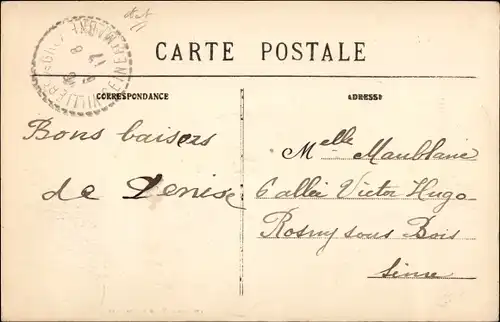 CARTE POSTALE
CORRESPONDANCE
ADRESSE
Bons baisers
de Denise
Melle Maublanc
6 allée Victor Hugo
Rosny sous Bois
Seine